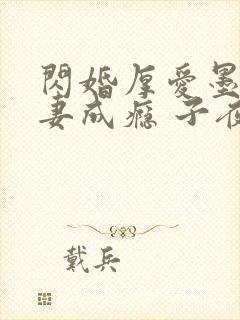 閃婚厚愛墨
妻成癮 子夜
戴兵